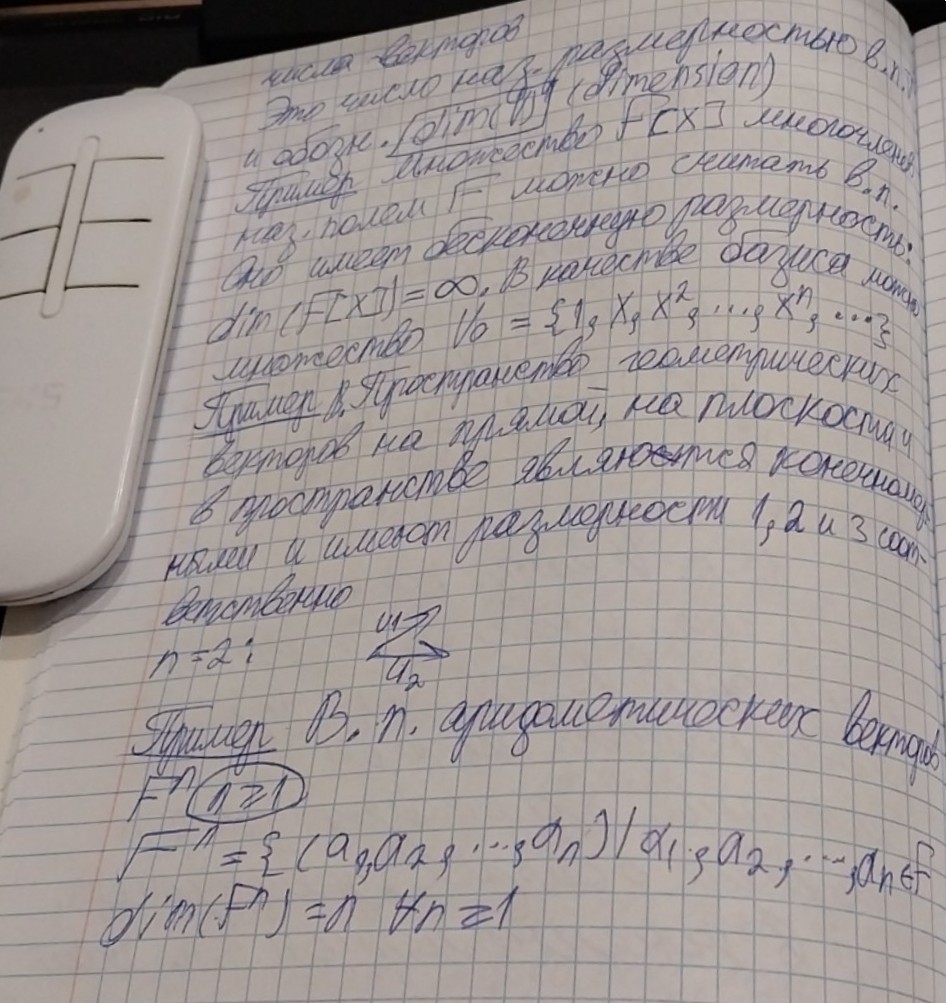 числа векторов
Это число наз. размерностью в.п.
и обозн. dim(V) (dimension)
Пример Множество F[X] многочленов
над полем F можно считать в.п.
Оно имеет бесконечную размерность:
dim(F[X]) = ∞. В качестве базиса можно
множество V₀ = {1, X, X², ..., Xⁿ, ...}
Пример В. Пространство геометрических
векторов на прямой, на плоскости и
в пространстве являются конечномер
ными и имеют размерности 1, 2 и 3 соот-
ветственно
n=2:
u₁
u₂
Пример В. п. арифметических векторов
Fⁿ n≥1
Fⁿ = {(a₁, a₂, ..., aₙ) | a₁, a₂, ..., aₙ ∈ F
dim(Fⁿ) = n ∀n ≥ 1